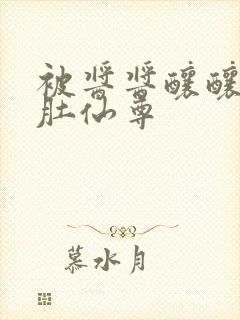 被酱酱酿酿
肚仙尊
慕水月